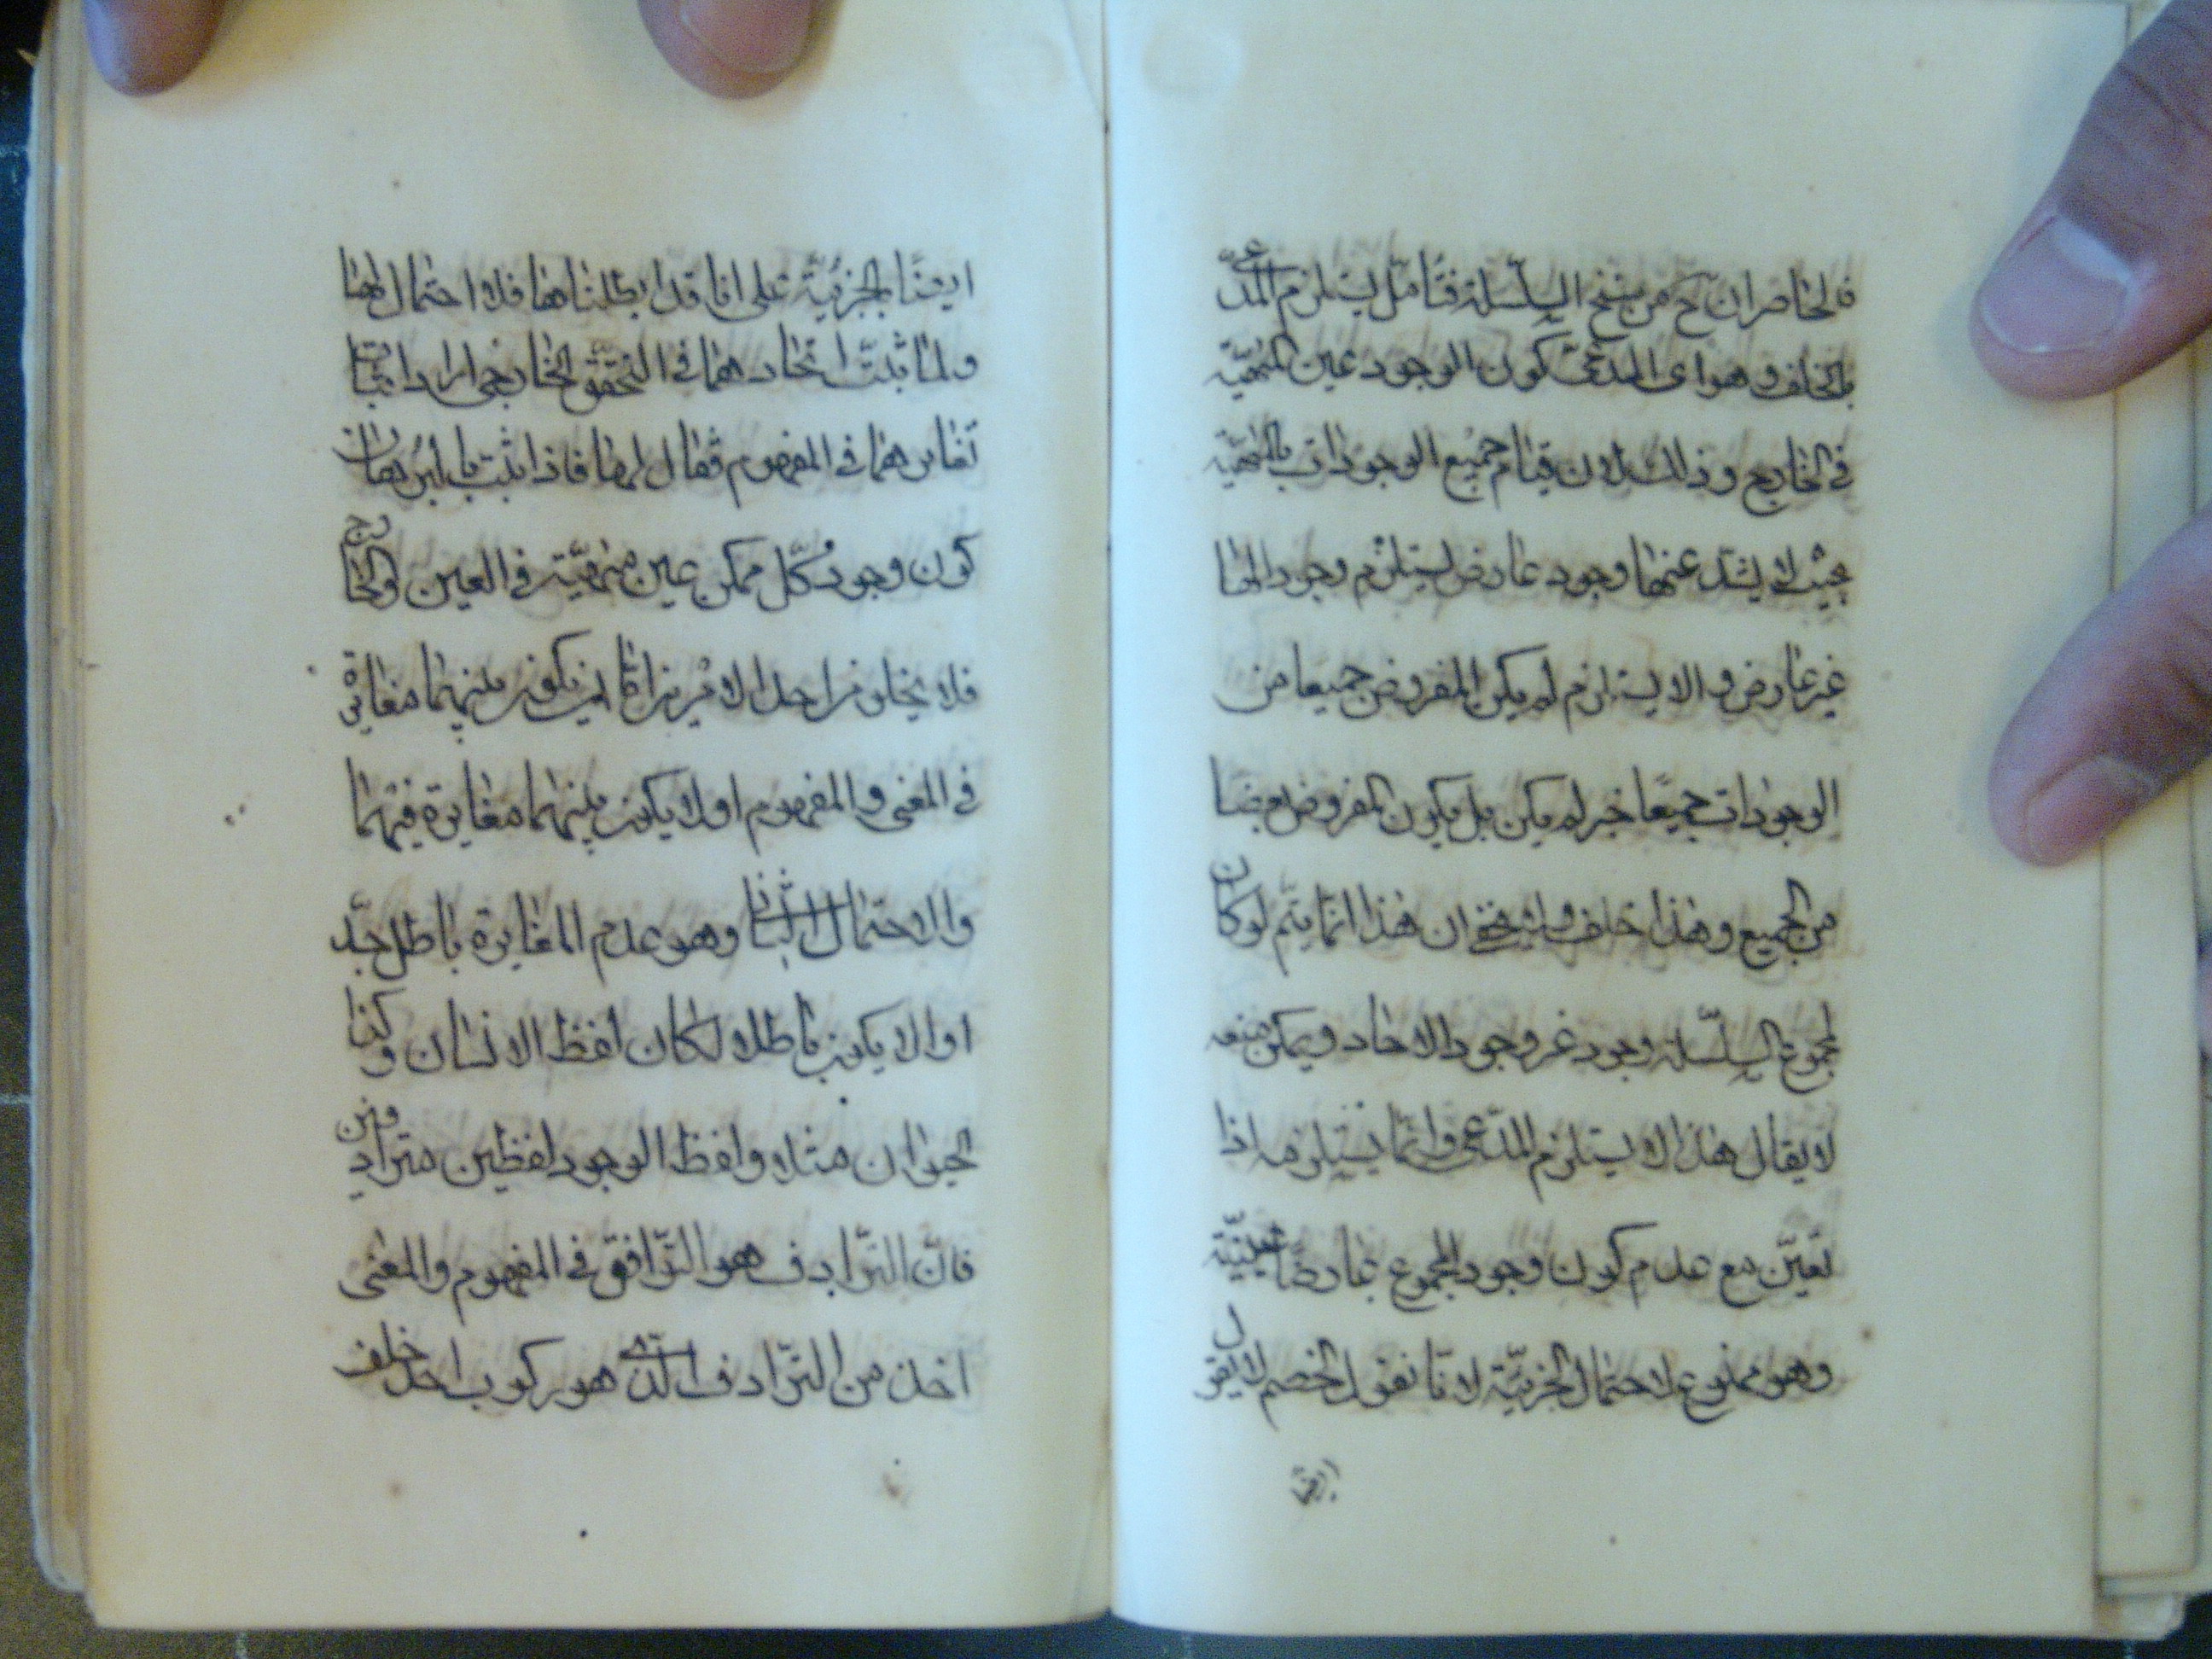 فالحاصر ان ح من سنخ السلسلة فتامل يستلزم المدعى
بالخلف وهو اى المدعى كون الوجود عين المهية
فى الخارج وذلك لان قيام جميع الوجودات بالمهية
بحيث لا يشذ عنها وجود عارض يستلزم وجود الها
غير عارض والا يستلزم لم يكن المفروض جميعا من
الوجودات جميعا خبر لم يكن بل يكون المفروض بعضا
من الجميع وهذا خلف ولا يخفى ان هذا انما يتم لو كان
لمجموع السلسلة وجود غير وجود الاحاد ويمكن منعه
لا يقال هذا لا يستلزم المدعى وانما يستلزمه اذا
تعين مع عدم كون وجود المجموع عارضا عينية
وهو ممنوع لاحتمال الجزئية لانا نقول الخصم لا يقول
ايضا
ايضا بالجزئية على انا قد ابطلناها فلا احتمال لها
ولما ثبت اتحادهما فى التحقق الخارجى اراد اثبات
تغايرهما فى المفهوم فقال لها فاذا ثبت بالبرهان
كون وجود كل ممكن عين مهية فى العين والخارج
فلا يخلو من احد الامرين اما ان يكون بينهما مغايرة
فى المعنى والمفهوم او لا يكون بينهما مغايرة فيهما
والاحتمال الثانى وهو عدم المغايرة باطل جد
او الا يكون باطلا لكان لفظ الانسان وكذا
الحيوان مثلا ولفظ الوجود لفظين مترادفين
فان الترادف هو التوافق فى المفهوم والمعنى
اخذ من الترادف الذى هو ركوب احد خلف